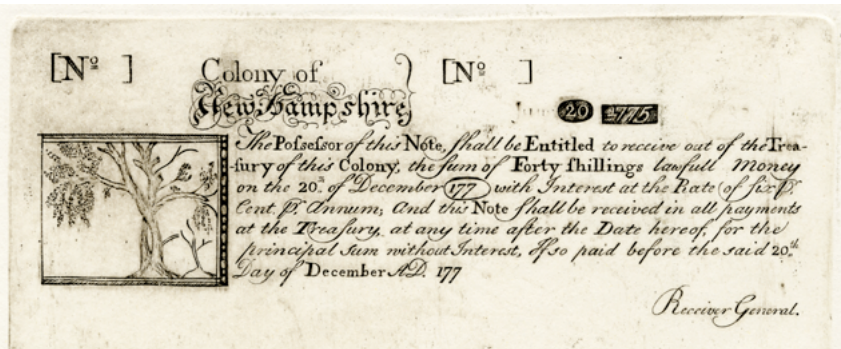 [Nº ] Colony of [Nº ]
New Hampshire
20 1775
The Possessor of this Note, shall be Entitled to receive out of the Trea-
-sury of this Colony, the sum of Forty shillings lawfull Money
on the 20.th of December 177 with Interest at the Rate of six P.
Cent. P. Annum; And this Note shall be received in all payments
at the Treasury, at any time after the Date hereof, for the
principal sum without Interest, If so paid before the said 20.th
Day of December A.D. 177
Receiver General.